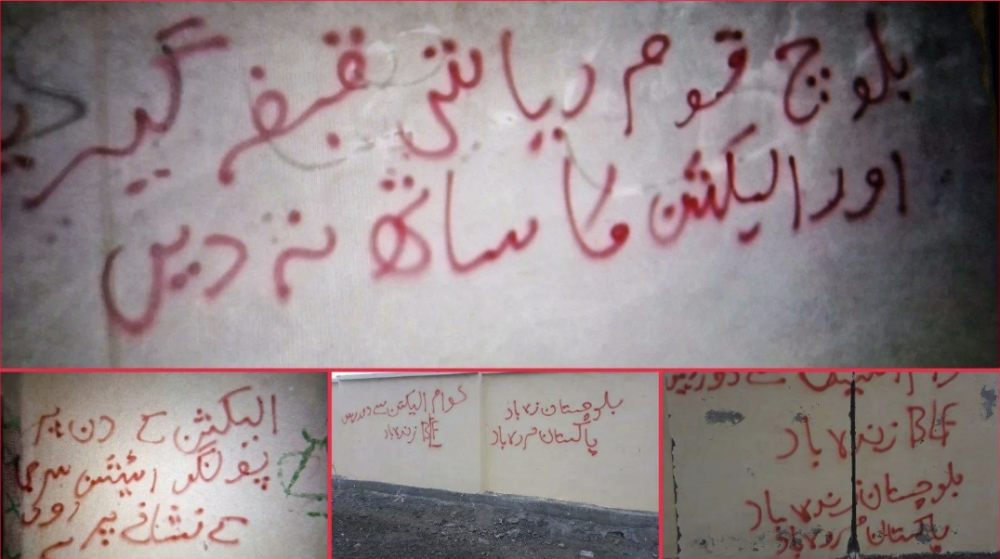 بلوچ قوم ریاستی قبضہ گیر
اور الیکشن کا ساتھ نہ دیں
الیکشن کے دن ہر
پولنگ اسٹیشن سرمچا
کے نشانے پر ہوں
عوام الیکشن سے دور رہیں
BLF زندہ باد
بلوچستان زندہ باد
پاکستان مردہ باد
الیکشن سے دور رہیں
BLF زندہ باد
بلوچستان زندہ باد
پاکستان مردہ باد